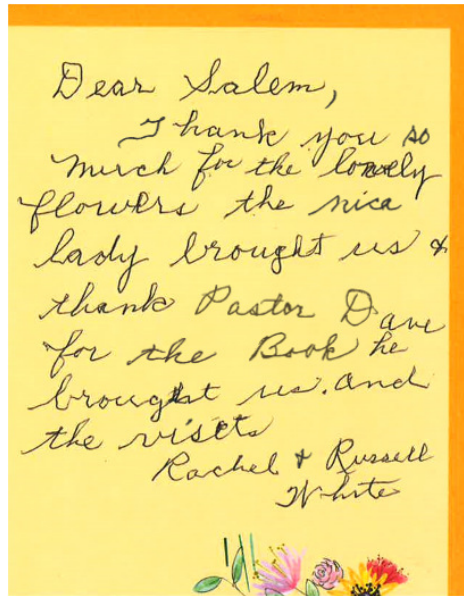 Dear Salem,
Thank you so
much for the lovely
flowers the nice
lady brought us &
thank Pastor Dave
for the Book he
brought us. and
the visits
Rachel & Russell
White